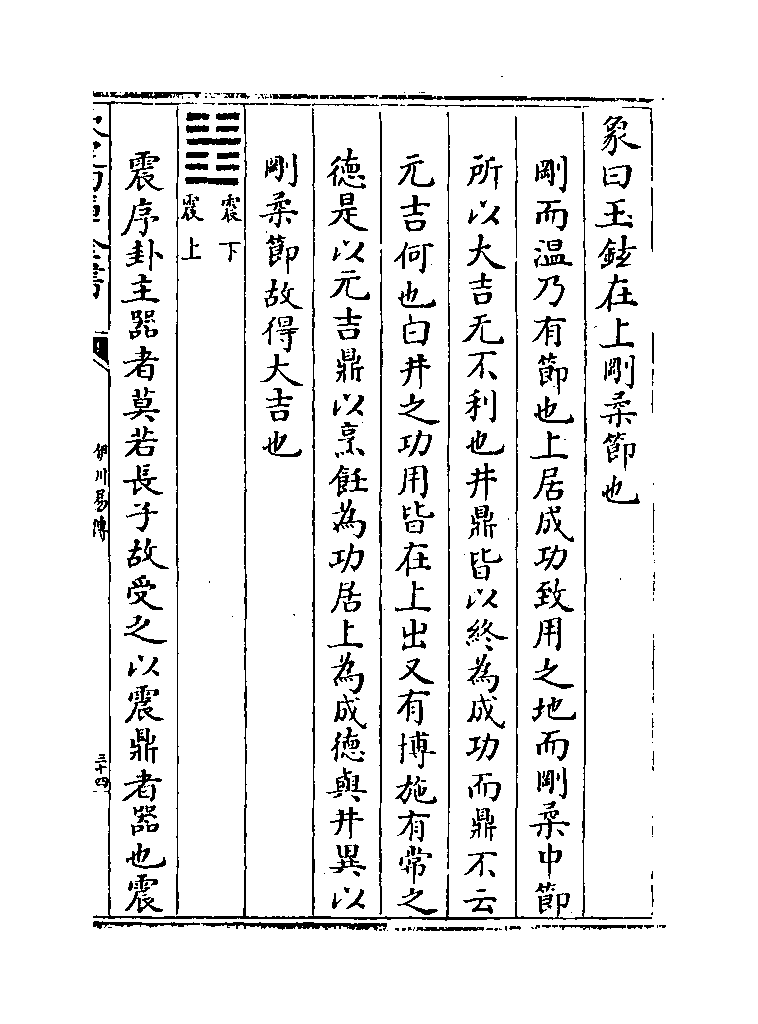 象曰玉鉉在上剛柔節也
剛而温乃有節也上居成功致用之地而剛柔中節
所以大吉无不利也井鼎皆以終為成功而鼎不云
元吉何也曰井之功用皆在上出又有博施有常之
德是以元吉鼎以烹飪為功居上為成德與井異以
剛柔節故得大吉也
震下
震上
震序卦主器者莫若長子故受之以震鼎者器也震
伊川易傳
三十四